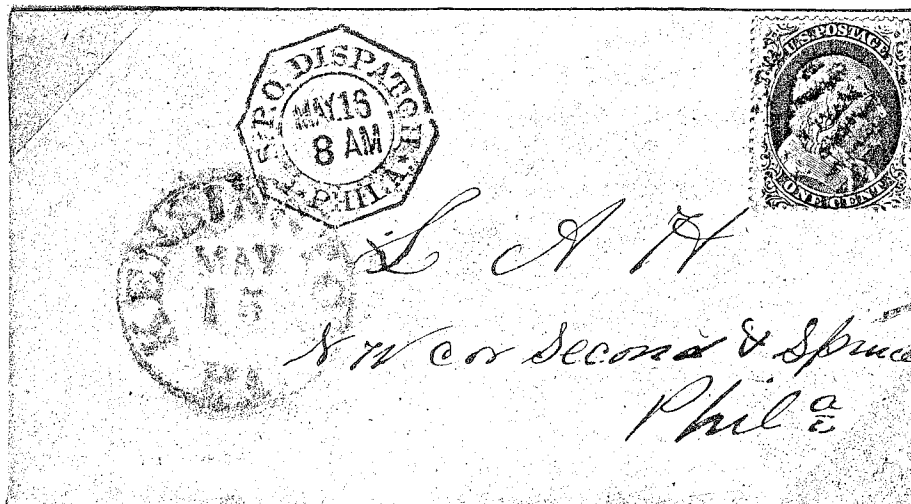 U.S.P.O. DISPATCH
MAY.16
8 AM
PHILA
U.S. POSTAGE
ONE CENT
MAY
15
PA
L A H
N W cor Second & Spruce
Phila